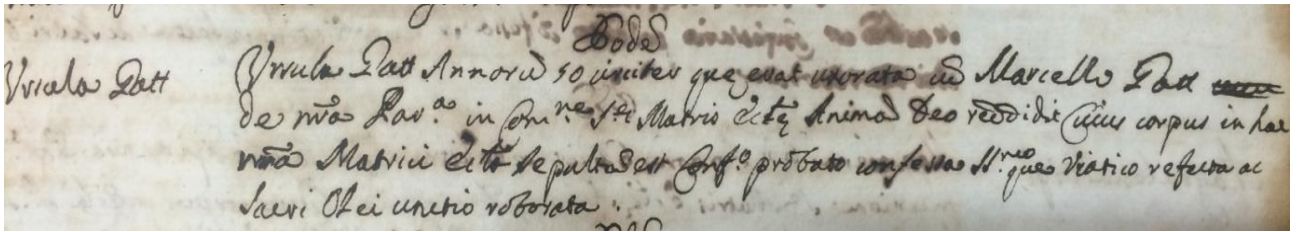 Eode
Ursula Patt
Ursula Patt Annorũ 50 circiter quę erat uxorata cũ Marcello Patt
de nrã Par.ª in Com.ne S.tę Matris Ecctę Animã Deo reddidit Cuius corpus in hac
nrã Matrici Ecctã sepultũ est Conf.º probato confessa SS.moque Viatico refecta ac
Sacri Olei unctio roborata.